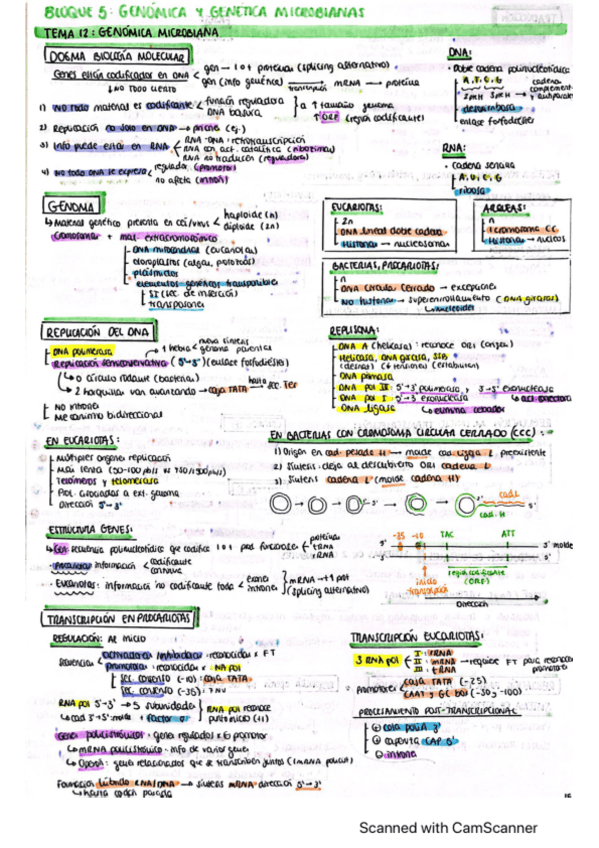 BLOQUE 5: GENÓMICA Y GENÉTICA MICROBIANAS
TEMA 12: GENÓMICA MICROBIANA
DOGMA BIOLOGÍA MOLECULAR
Genes están codificados en DNA
gen → 1 o + proteínas (splicing alternativo)
gen (info genética) → mRNA → proteína
transcripción
↓ NO TODO CIERTO
1) NO todo material es codificante
función reguladora
DNA basura
↑ tamaño genoma
↑ ORF (región codificante)
2) Replicación no solo en DNA → priones (ej.)
3) Info puede estar en RNA
RNA-DNA: retrotranscripción
RNA con act. catalítica (ribozimas)
RNA no traducido (reguladores)
4) NO todo DNA se expresa
regulador (promotor)
no afecta (intrón)
DNA:
Doble cadena polinucleotídica
A, T, C, G
desoxirribosa
enlace fosfodiéster
RNA:
cadena sencilla
A, U, C, G
ribosa
GENOMA
↳ Material genético presente en cél/virus
haploide (n)
diploide (2n)
Cromosomas + mat. extracromosómico
DNA mitocondrial (eucariotas)
cloroplastos (algas, protozoos)
plásmidos
elementos genéticos transponibles
SI (sec. de inserción)
transposones
EUCARIOTAS:
2n
DNA lineal doble cadena
Histonas → nucleosomas
ARQUEAS:
n
1 cromosoma CC
Histonas →
BACTERIAS, PROCARIOTAS:
n
DNA circular cerrado → excepciones
NO histonas → superenrollamiento (DNA girasas)
REPLICACIÓN DEL DNA
DNA polimerasa
Replicación semiconservativa (5'→3') (enlace fosfodiéster)
↳ O círculo rodante (bacterias)
↳ 2 horquillas van avanzando → caja TATA → sec. Ter
hasta
NO intrones
Mecanismo bidireccional
REPLISOMA:
DNA A (Helicasa): reconoce ORI (origen)
Helicasa, DNA girasa, SSB
DNA primasa
DNA pol III: 5'→3' polimerasa, 3'→5' exonucleasa
DNA pol I: 5'→3' exonucleasa
DNA ligasa
elimina cebador
EN EUCARIOTAS:
Múltiples orígenes replicación
Telómeros y telomerasa
Dirección 5'→3'
EN BACTERIAS CON CROMOSOMA CIRCULAR CERRADO (CCC):
2) Síntesis: deja al descubierto ORI cadena L
3) Síntesis cadena L (molde cadena H)
cad. L
cad. H
ESTRUCTURA GENES:
↳ Gen: secuencia polinucleotídica que codifica 1 o + pat. funciones
proteínas
tRNA
rRNA
Procariotas: información
codificante
continua
Eucariotas: información no codificante toda
exones
intrones
mRNA → +1 prot
(splicing alternativo)
-35 -10 TAC ATT
3' molde
inicio transcripción
región codificante (ORF)
Dirección
TRANSCRIPCIÓN EN PROCARIOTAS
REGULACIÓN: Al inicio
Secuencias
activadoras/inhibidoras: reconocidas x FT
promotoras: reconocidas x RNA pol
sec. consenso (-10): caja TATA
sec. consenso (-35):
RNA pol 5'→3' → 5 subunidades
↳ cad 3'→5' molde + factor σ
RNA pol reconoce
punto inicio (+1)
Genes policistrónicos: genes regulados x 1 promotor
↳ mRNA policistrónico: info de varios genes
↳ Operón: genes relacionados que se transcriben juntos (1 mRNA policist)
Formación híbrido RNA/DNA → síntesis mRNA dirección 5'→3'
↳ hasta codón parada
TRANSCRIPCIÓN EUCARIOTAS:
3 RNA pol
I: rRNA
II: mRNA → requiere FT para reconocer promotores
III: tRNA
Promotores
caja TATA (-25)
CAAT y GC box (-50 y -100)
PROCESAMIENTO POST-TRANSCRIPCIONAL
⊕ cola poliA 3'
⊕ caperuza CAP 5'
⊖ intrones
Scanned with CamScanner